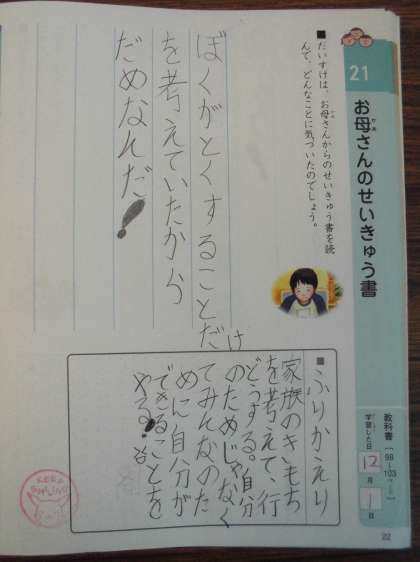 21
お母さんのせいきゅう書
かあ
■だいすけは、お母さんからのせいきゅう書を読
んで、どんなことに気づいたのでしょう。
ぼくがとくすることだけ
を考えていたから
だめなんだ！
教科書【98〜103ページ】
学習した日 12月1日
■ふりかえり
家族のきいもち
を考えて、行
どうする。自分
のためじゃなく
てみんなのた
めに自分が
できることを
やる！
KEEP
SMILING
22